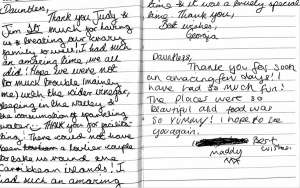 Dauntless,
Thank you Judy &
Jim so much for having
us & treating our crazy
family so well! I had such
an amazing time, we all
did! Hope we were not
too much trouble (mainly
me) with the cider vinegar,
sleeping in the valley &
the consumption of sparkling
water. Thank you for
There could not have
been a lovelier couple
to take us round the
Carribbean islands! I
had such an amazing
time & it was a lovely special
time. Thank you,
Best wishes,
Georgia
Dauntless,
Thank you for such
an amazing few days! I
have had so much fun!
The places were so
beautiful and food was
so yummy! I hope to see
you again.
Maddy